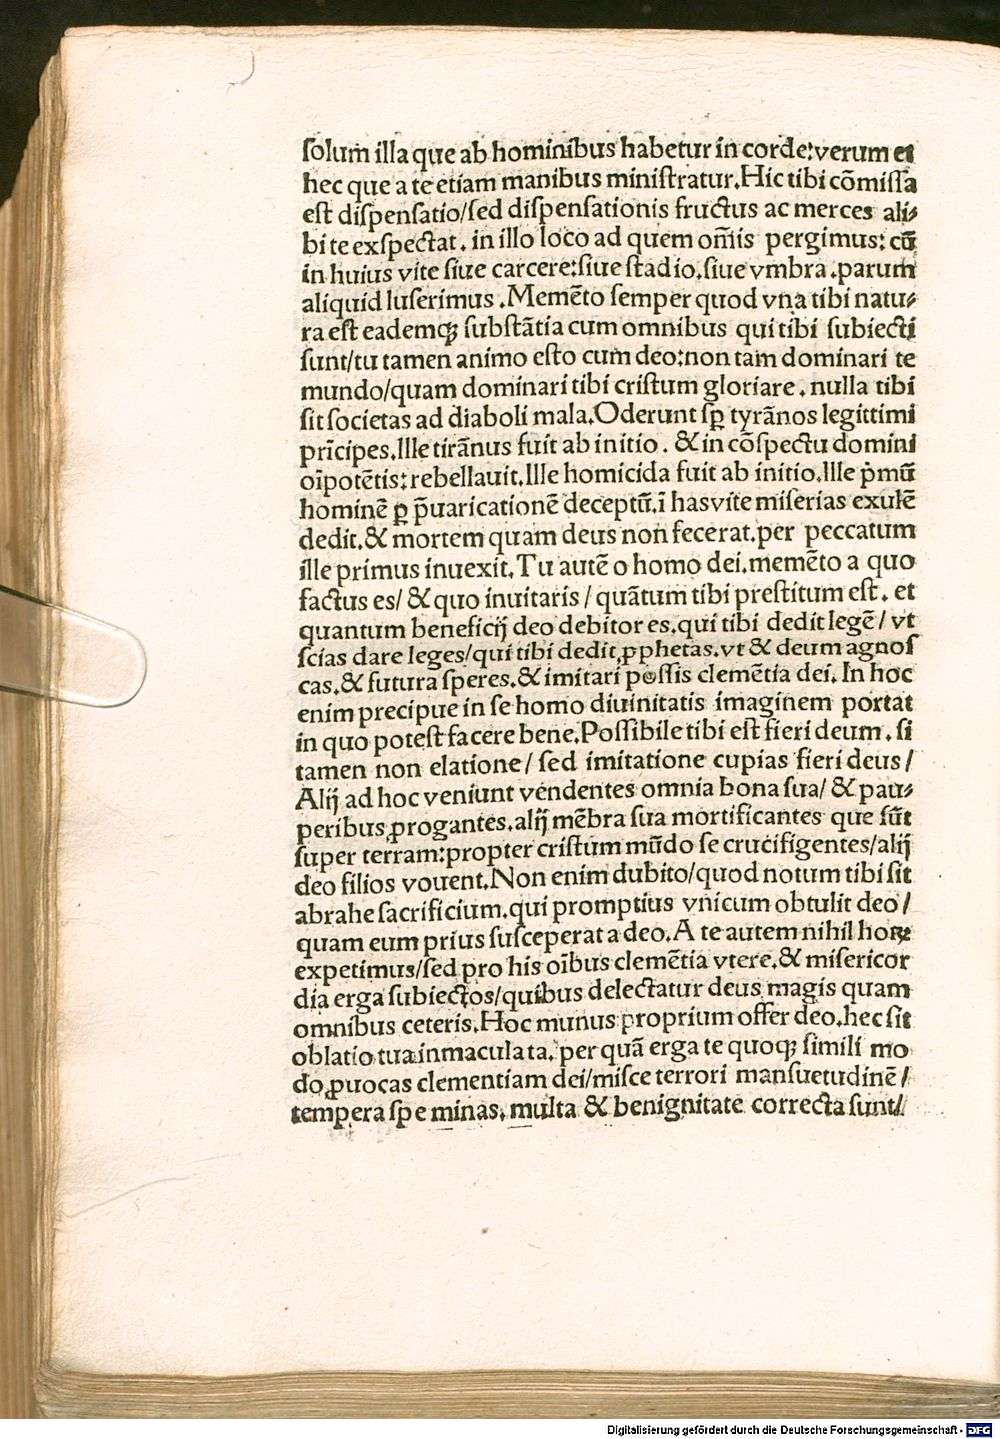 ſolum illa que ab hominibus habetur in corde:verum et
hec que a te etiam manibus miniſtratur.Hic tibi cōmiſſa
eſt diſpenſatio/ſed diſpenſationis fructus ac merces ali⸗
bi te exſpectat. in illo loco ad quem om̄is pergimus: cū
in huius vite ſiue carcere:ſiue ſtadio.ſiue vmbra .parum
aliquid luſerimus .Memēto ſemper quod vna tibi natu⸗
ra eſt eademq̧ ſubſtātia cum omnibus qui tibi ſubiecti
ſunt/tu tamen animo eſto cum deo:non tam dominari te
mundo/quam dominari tibi criſtum gloriare. nulla tibi
ſit ſocietas ad diaboli mala.Oderunt ſꝑ tyrānos legittimi
prīcipes.Ille tirānus fuit ab initio. & in cōſpectu domini
oīpotētis:rebellauit.Ille homicida fuit ab initio.Ille p̍mū
hominē ꝑ p̄uaricationē deceptū.ī has vite miſerias exulē
dedit.& mortem quam deus non fecerat.per peccatum
ille primus inuexit.Tu autē o homo dei.memēto a quo
factus es/ & quo inuitaris / quātum tibi preſtitum eſt. et
quantum beneficij deo debitor es.qui tibi dedit legē/ vt
ſcias dare leges/qui tibi dedit ꝓphetas.vt & deum agnoſ
cas.& futura ſperes.& imitari poſſis clemētia dei. In hoc
enim precipue in ſe homo diuinitatis imaginem portat
in quo poteſt facere bene.Poſſibile tibi eſt fieri deum. ſi
tamen non elatione/ ſed imitatione cupias fieri deus/
Alij ad hoc veniunt vendentes omnia bona ſua/ & pau⸗
peribus ꝓrogantes.alij mēbra ſua mortificantes que ſūt
ſuper terram:propter criſtum mūdo ſe crucifigentes/alij
deo filios vouent.Non enim dubito/quod notum tibi ſit
abrahe ſacrificium.qui promptius vnicum obtulit deo/
quam eum prius ſuſceperat a deo.A te autem nihil hoꝝ
expetimus/ſed pro his oībus clemētia vtere.& miſericor
dia erga ſubiectos/quibus delectatur deus magis quam
omnibus ceteris.Hoc munus proprium offer deo.hec ſit
oblatio tua inmaculata. per quā erga te quoq̧ ſimili mo
do ꝓuocas clementiam dei/miſce terrori manſuetudinē/
tempera ſpe minas. multa & benignitate correcta ſunt/
Digitalisierung gefördert durch die Deutsche Forschungsgemeinschaft - DFG